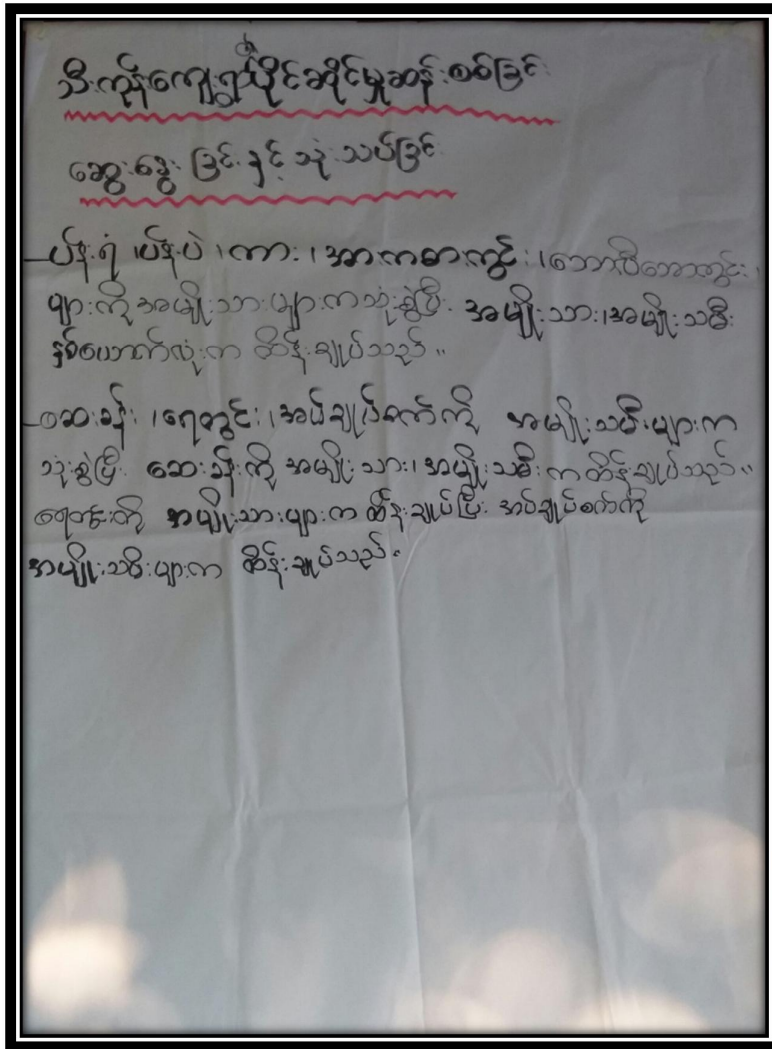 သီးကုန်ကျေးရွာပိုင်ဆိုင်မှုဆန်းစစ်ခြင်း
ဆွေးနွေးခြင်းနှင့်သုံးသပ်ခြင်း
-ပန်းရံ၊ပန်းပဲ၊ကား၊အားကစားကွင်း၊ဘောလီဘောကွင်း၊
များကိုအမျိုးသားများကသုံးစွဲပြီး အမျိုးသား၊အမျိုးသမီး
နှစ်ယောက်လုံးက ထိန်းချုပ်သည်။
-ဆေးခန်း၊ရေတွင်း၊အပ်ချုပ်စက်ကို အမျိုးသမီးများက
သုံးစွဲပြီး ဆေးခန်းကိုအမျိုးသား၊အမျိုးသမီးကထိန်းချုပ်သည်။
ရေတွင်းကို အမျိုးသားများကထိန်းချုပ်ပြီး အပ်ချုပ်စက်ကို
အမျိုးသမီးများက ထိန်းချုပ်သည်။